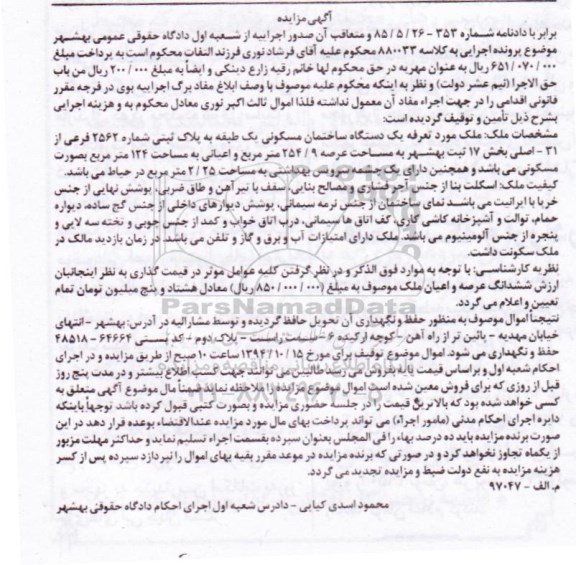 آگهی مزایده
برابر با دادنامه شماره ۳۵۳ - ۲۶ / ۵ / ۸۵ و متعاقب آن صدور اجراییه از شعبه اول دادگاه حقوقی عمومی بهشهر
موضوع پرونده اجرایی به کلاسه ۸۸۰۰۳۳ محکوم علیه آقای فرشاد نوری فرزند التفات محکوم است به پرداخت مبلغ
۶۵۱/۰۷۰/۰۰۰ ریال به عنوان مهریه در حق محکوم لها خانم رقیه زارع دینکی و ایضاً به مبلغ ۲۰۰/۰۰۰ ریال من باب
حق الاجرا (نیم عشر دولت) و نظر به اینکه محکوم علیه موصوف با وصف ابلاغ مفاد برگ اجراییه بوی در فرجه مقرر
قانونی اقدامی را در جهت اجراء مفاد آن معمول نداشته فلذا اموال ثالث اکبر نوری معادل محکوم به و هزینه اجرایی
بشرح ذیل تأمین و توقیف گردیده است:
مشخصات ملک: ملک مورد تعرفه یک دستگاه ساختمان مسکونی یک طبقه به پلاک ثبتی شماره ۲۵۶۲ فرعی از
۳۱ - اصلی بخش ۱۷ ثبت بهشهر به مساحت عرصه ۲۵۴/۹ متر مربع و اعیانی به مساحت ۱۲۴ متر مربع بصورت
مسکونی می باشد و همچنین دارای یک سرویس بهداشتی به مساحت ۲/۲۵ متر مربع در حیاط می باشد.
کیفیت ملک: اسکلت بنا از جنس آجر فشاری و مصالح بنایی، سقف با تیرآهن و طاق ضربی، پوشش نهایی از جنس
خرپا با ایرانیت می باشد نمای ساختمان از جنس نرمه سیمانی، پوشش دیوارهای داخلی از جنس گچ ساده، دیواره
حمام، توالت و آشپزخانه کاشی کاری، کف اتاق ها سیمانی، درب اتاق خواب و کمد از جنس چوبی و نخته سه لایی و
پنجره از جنس آلومینیوم می باشد. ملک دارای امتیازات آب و برق و گاز و تلفن می باشد. در زمان بازدید مالک در
ملک سکونت داشت.
نظر به کارشناسی: با توجه به موارد فوق الذکر و در نظر گرفتن کلیه عوامل موثر در قیمت گذاری به نظر اینجانبان
ارزش ششدانگ عرصه و اعیان ملک موصوف به مبلغ (۸۵۰/۰۰۰/۰۰۰ ریال) معادل هشتاد و پنج میلیون تومان تمام
تعیین و اعلام می گردد.
نتیجتاً اموال موصوف به منظور حفظ و نگهداری آن تحویل حافظ گردیده و توسط مشارالیه در آدرس: بهشهر - انتهای
خیابان مهدیه - پائین تر از راه آهن - کوچه ارکیده ۶ - سمت راست - پلاک دوم - کد پستی ۶۴۶۶۴ - ۴۸۵۱۸
حفظ و نگهداری می شود. اموال موضوع توقیف برای مورخ ۱۵ / ۱۰ / ۱۳۹۴ ساعت ۱۰ صبح از طریق مزایده و در اجرای
احکام شعبه اول و براساس قیمت پایه بفروش می رسد طالبین می توانند جهت کسب اطلاع بیشتر و در مدت پنج روز
قبل از روزی که برای فروش معین شده است اموال موضوع مزایده را ملاحظه نماید ضمناً مال موضوع آگهی متعلق به
کسی خواهد شد بود که بالاترین قیمت را در جلسه حضوری مزایده و بصورت کتبی قبول کرده باشد توجهاً باینکه
دایره اجرای احکام مدنی (مامور اجراء) می تواند پرداخت بهای مال مورد مزایده عندالاقتضاء بوعده قرار دهد در این
صورت برنده مزایده باید ده درصد بهاء را فی المجلس بعنوان سپرده بقسمت اجراء تسلیم نماید و حداکثر مهلت مزبور
از یکماه تجاوز نخواهد کرد و در صورتی که برنده مزایده در موعد مقرر بقیه بهای اموال را نپردازد سپرده پس از کسر
هزینه مزایده به نفع دولت ضبط و مزایده تجدید می گردد.
م. الف - ۹۷۰۴۷
محمود اسدی کیاپی - دادرس شعبه اول اجرای احکام دادگاه حقوقی بهشهر
ParsNamadData